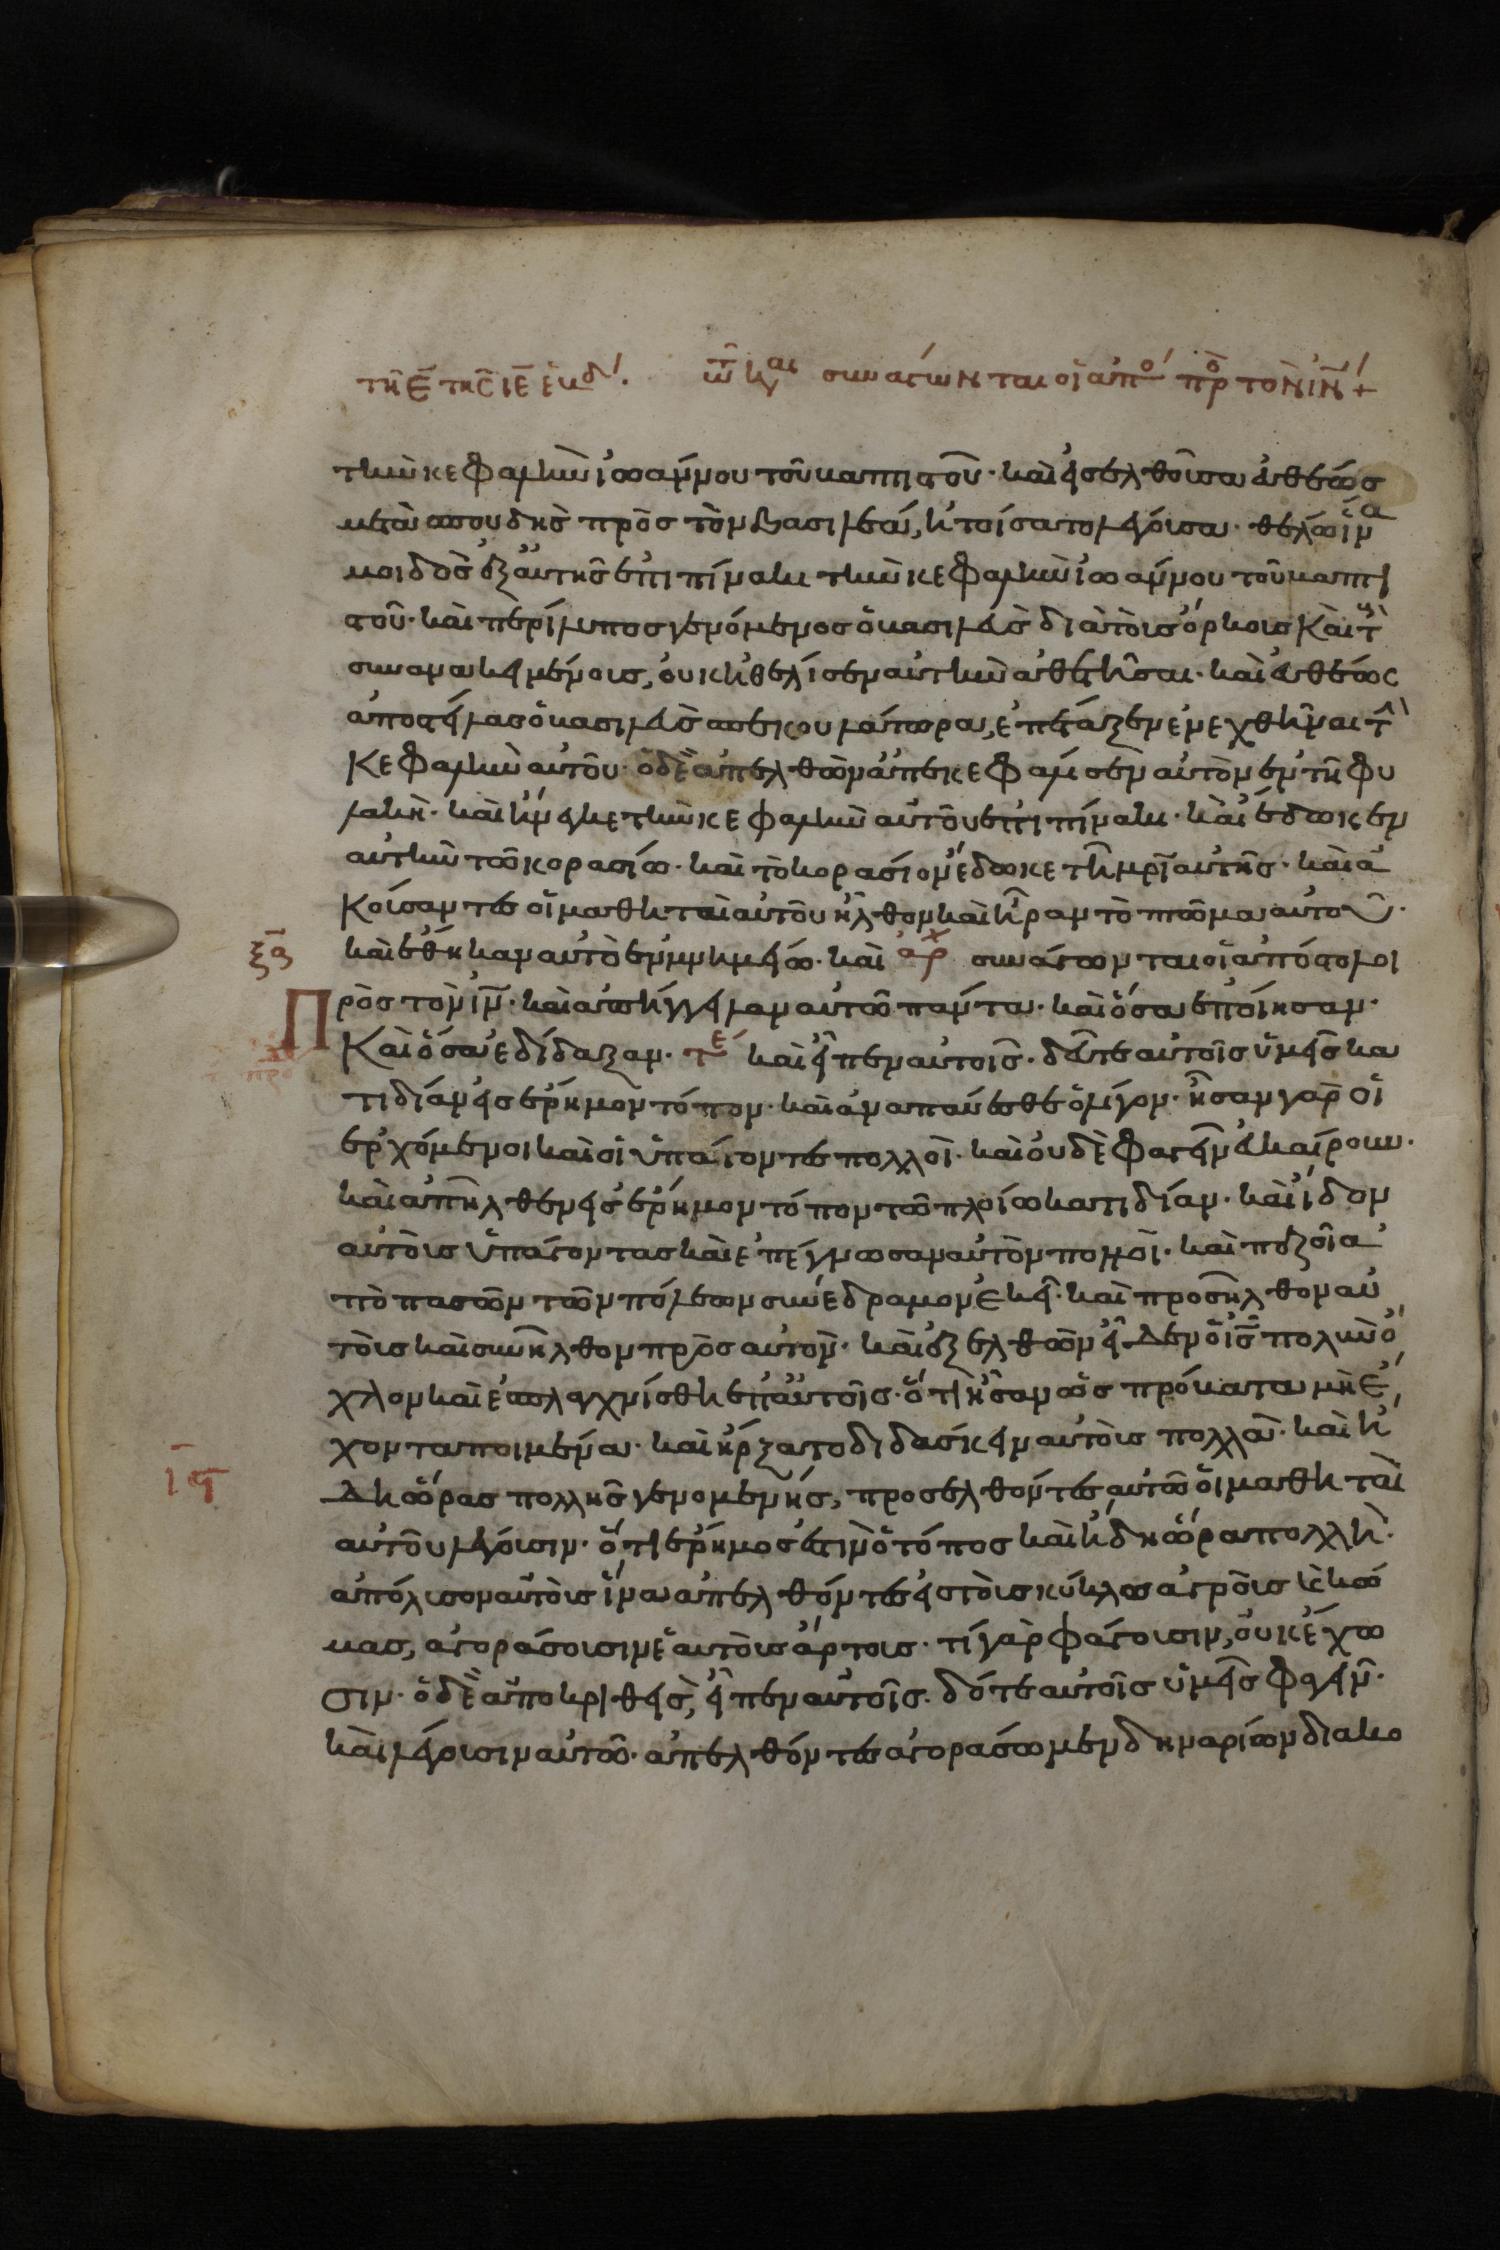 τῆ ε̄ τῆς ιε̄ ἑβδ. τῶ κ αι συνάγωνται οἱ απο πρ τὸν ιν̄ +
τὴν κεφαλὴν ἰωάννου τοῦ βαπτιστοῦ· καὶ εἰσελθοῦσα εὐθέως
μετὰ σπουδῆς πρὸς τὸν βασιλέα, ἠτήσατο λέγουσα· θέλω ἵνα
μοι δὸς ἐξαυτῆς ἐπι πίνακι τὴν κεφαλὴν ἰωάννου τοῦ βαπτι
στοῦ· καὶ περίλυπος γενόμενος ὁ βασιλεὺς διὰ τοὺς ὅρκους καὶ τ
συνανακειμένους, οὐκ ἠθέλησεν αὐτὴν ἀθετῆσαι· καὶ εὐθέως
ἀποστείλας ὁ βασιλεὺς σπεκουλάτωρα, ἐπέταξεν ἐνεχθῆναι τ
κεφαλὴν αὐτοῦ· ὁ δὲ ἀπελθὼν ἀπεκεφάλισεν αὐτὸν ἐν τῆ φυ
λακῆ· καὶ ἤνεγκε τὴν κεφαλὴν αὐτοῦ ἐπι πίνακι· καὶ ἔδωκεν
αὐτὴν τῶ κορασίω· καὶ τὸ κοράσιον ἔδωκε τῆ μρῒ αὐτῆς· καὶ ἀ
κούσαντες οἱ μαθηταὶ αὐτοῦ ἦλθον καὶ ἦραν τὸ πτῶμα αὐτοῦ·
ξα καὶ ἔθηκαν αὐτὸ ἐν μνημείω· καὶ αρχ συνάγονται οἱ ἀπόστολοι
πρὸς τὸν ιν̄· καὶ ἀπήγγειλαν αὐτῶ πάντα· καὶ ὅσα ἐποίησαν·
καὶ ὅσα ἐδίδαξαν· τε καὶ εἶπεν αὐτοῖς· δεῦτε αὐτοὶς ὑμεῖς κα
τιδίαν εἰς ἔρημον τόπον· καὶ ἀναπαύεσθε ὀλίγον· ἦσαν γὰρ οἱ
ἐρχόμενοι καὶ οἱ ὑπάγοντες πολλοὶ· καὶ οὐδὲ φαγεῖν εὐκαίρουν·
καὶ ἀπῆλθεν εἰς ἔρημον τόπον τῶ πλοίω κατιδίαν· καὶ ἴδον
αὐτοὺς ὑπάγοντας καὶ ἐπέγνωσαν αὐτὸν πολλοὶ· καὶ πεζοῖ ἀ
πὸ πασῶν τῶν πόλεων συνέδραμον ἐκεῖ· καὶ προσῆλθον αὐ
τοῖς καὶ συνῆλθον πρὸς αυτὸν· καὶ ἐξελθὼν εἶδεν ὁ ις̄ πολὺν ὄ
χλον καὶ ἐσπλαγχνίσθη ἐπαὐτοῖς· ὅτι ἦσαν ὡς πρόβατα μὴ ἔ
χοντα ποιμένα· καὶ ἤρξατο διδάσκειν αὐτοὺς πολλὰ· καὶ ἤ
ιϛ δη ὥρας πολλῆς γενομένης, προσελθόντες αὐτῶ οἱ μαθηταὶ
αὐτοῦ λέγουσιν· ὅτι ἔρημος ἐστὶν ὁ τόπος καὶ ἤδη ὥρα πολλὴ·
ἀπόλυσον αὐτοὺς ἵνα ἀπελθόντες εἰς τοὺς κύκλω ἀγροὺς καὶ κώ
μας, ἀγοράσουσιν ἑαυτοῖς ἄρτους· τί γὰρ φάγουσιν, οὐκ ἔχου
σιν· ὁ δὲ ἀποκριθεὶς, εἶπεν αὐτοῖς· δότε αὐτοῖς ὑμεῖς φαγεῖν·
καὶ λέγουσιν αὐτῶ· ἀπελθόντες ἀγοράσωμεν δηναρίων διακο